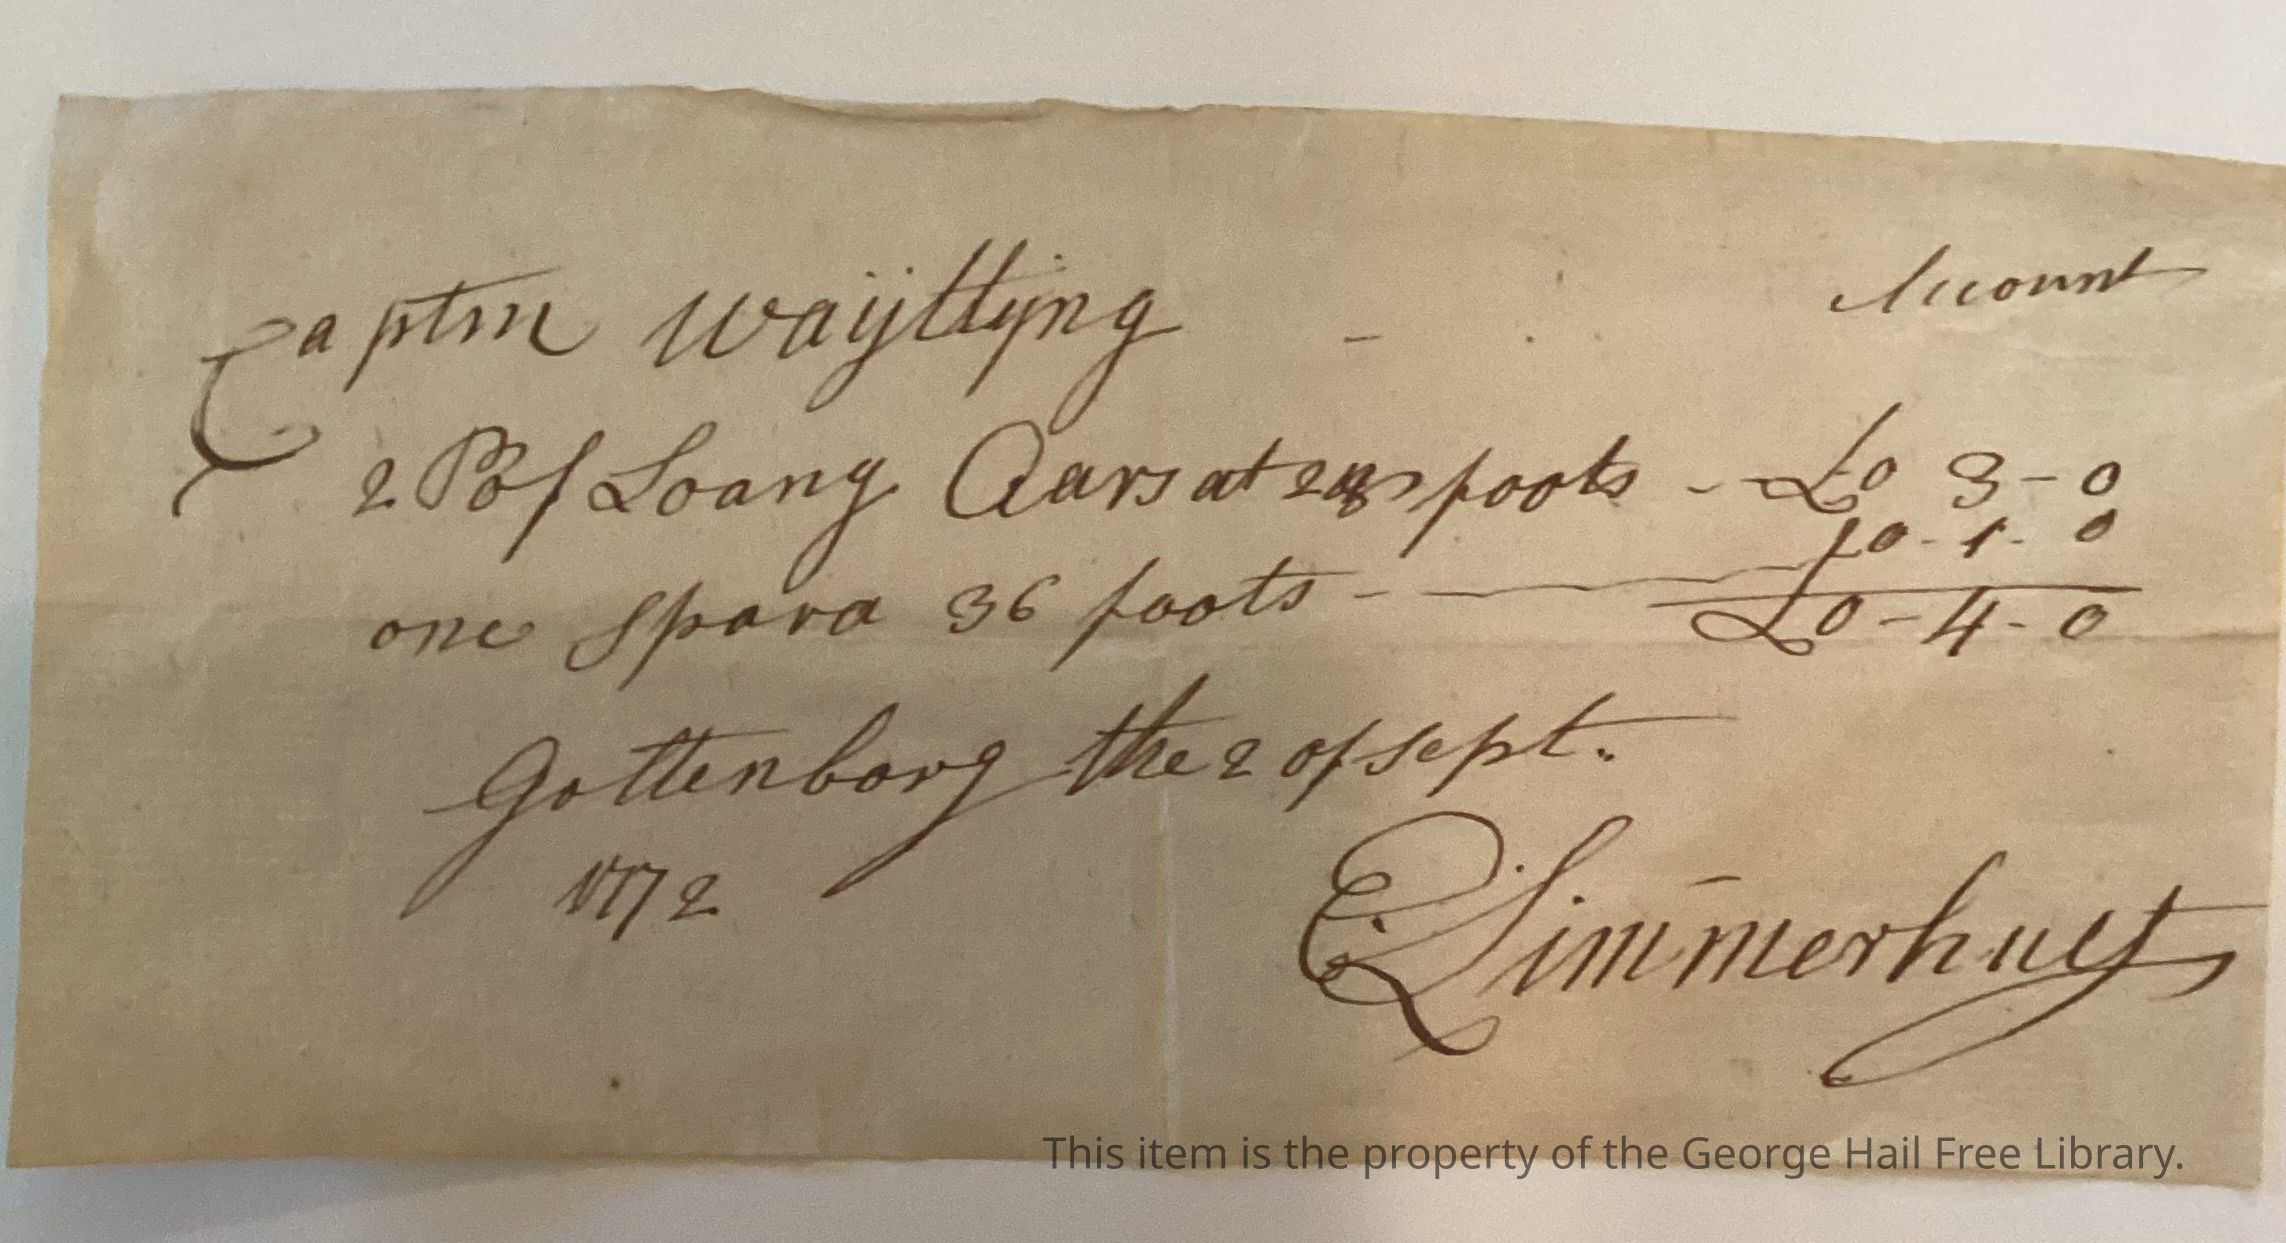 Captm Waÿttÿng Account
2 P of Loang Oars at foots - - £0 3 - 0
£0 - 1 - 0
one spara 36 foots - £0 - 4 - 0
Gottenborg the 2 of sept.
1772
E Limmerhult
This item is the property of the George Hail Free Library.